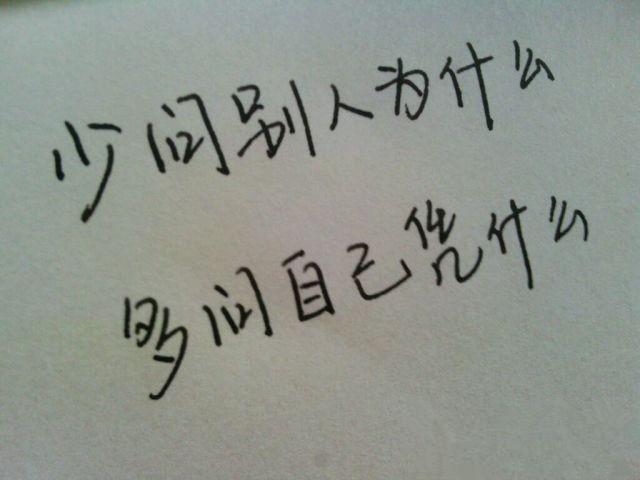 少问别人为什么
多问自己凭什么